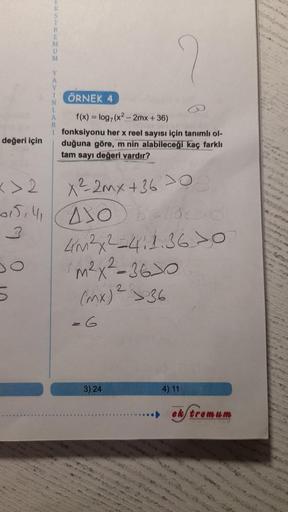 EKSTREMUM YAYINLARI
ÖRNEK 4
?
f(x) = log₇(x² – 2mx + 36)
fonksiyonu her x reel sayısı için tanımlı ol-
duğuna göre, m nin alabileceği kaç farklı
tam sayı değeri vardır?
değeri için
x²-2mx+36>0
Δ>0
4m²x²-4.1.36>0
m²x²-36>0
(mx)²>36
=6
x>2
3
>0
5
3) 24
4) 11
ekstremum